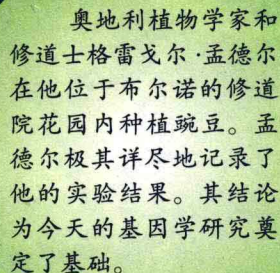 奥地利植物学家和
修道士格雷戈尔·孟德尔
在他位于布尔诺的修道
院花园内种植豌豆。孟
德尔极其详尽地记录了
他的实验结果。其结论
为今天的基因学研究奠
定了基础。